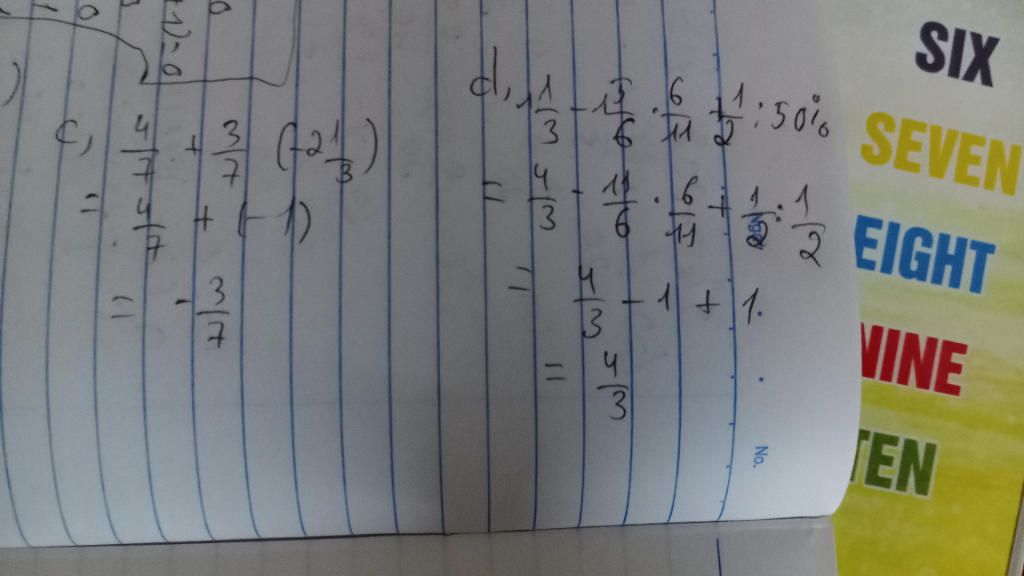 c, 4/7 + 3/7 (-2 1/3)
= 4/7 + (-1)
= - 3/7
d, 1 1/3 - 1 5/6 . 6/11 + 1/2 : 50%
= 4/3 - 11/6 . 6/11 + 1/2 : 1/2
= 4/3 - 1 + 1
= 4/3
No.
SIX
SEVEN
EIGHT
NINE
TEN